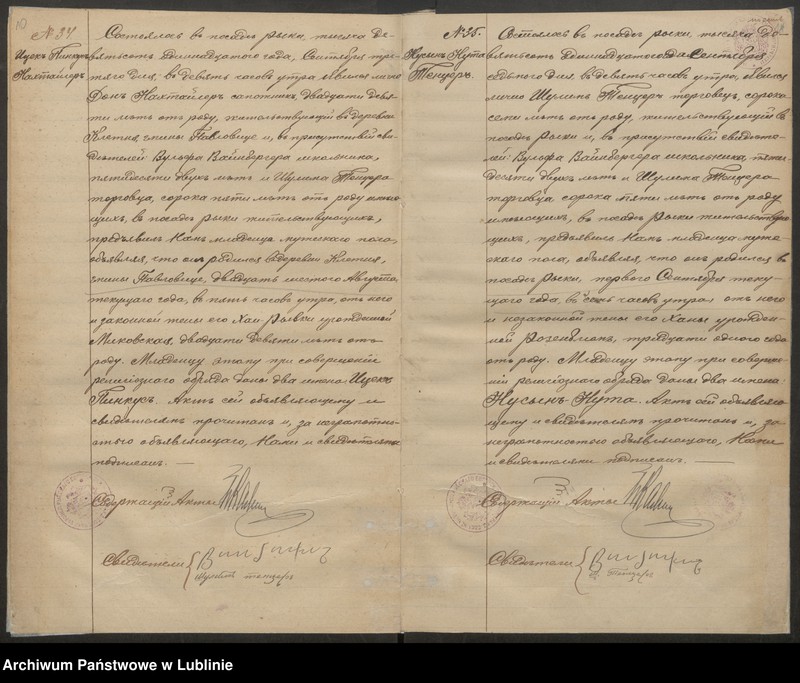 10
№ 34
Ицекъ Пинкусъ
Нахтайлеръ
Состоялось въ посадѣ Рыки, тысяча де-
вятьсотъ одиннадцатаго года, Сентября тре-
тяго дня, въ девять часовъ утра, явился лично
Нахтайлеръ сапожникъ, двадцати девя-
ти лѣтъ отъ роду, жительствующій въ деревнѣ
Клетня, гмины Павловице и, въ присутствіи сви-
дѣтелей Вульфа Вайнбергера школьника,
пятидесяти двухъ лѣтъ и Шулима Тенцера
торговца, сорока пяти лѣтъ отъ роду имѣю-
щихъ, въ посадѣ Рыки жительствующихъ,
предъявилъ Намъ младенца мужескаго пола,
объявляя, что онъ родился въ деревни Клетня,
гмины Павловице, двадцать шестого Августа
текущаго года, въ пять часовъ утра, отъ него
и законной жены его Хаи-Рывки урожденной
двадцати девяти лѣтъ отъ
роду. Младенцу этому при совершеніи
религіознаго обряда даны два имена: Ицекъ
Пинкусъ. Актъ сей объявляющему и
свидѣтелямъ прочитанъ и, за неграмотно-
стью объявляющаго, Нами и свидѣтелями
подписанъ. —
Содержащій Акты
Свидѣтели
Шулимъ Тенцеръ
№ 35.
Нусынъ Нута
Тенцеръ.
Состоялось въ посадѣ Рыки, тысяча де-
вятьсотъ одиннадцатаго года Сентября
седьмого дня, въ девять часовъ утра, явился
лично Шулимъ Тенцеръ торговецъ, сорока
семи лѣтъ отъ роду, жительствующій въ
посадѣ Рыки и, въ присутствіи свидѣте-
лей: Вульфа Вайнбергера школьника, пяти-
десяти двухъ лѣтъ и Шулима Тенцера
торговца, сорока пяти лѣтъ отъ роду
имѣющихъ, въ посадѣ Рыки жительствую-
щихъ, предъявилъ Намъ младенца муже-
скаго пола, объявляя, что онъ родился въ
посадѣ Рыки, перваго Сентября теку-
щаго года, въ часовъ утра, отъ него
и законной жены его Ханы урожден-
ной Розенблюмъ, тридцати одного года
отъ роду. Младенцу этому при соверше-
ніи религіознаго обряда даны два имена:
Нусынъ-Нута. Актъ сей объявляю-
щему и свидѣтелямъ прочитанъ и, за
неграмотностью объявляющаго, Нами
и свидѣтелями подписанъ. —
Содержащій Акты
Свидѣтели
Тенцеръ
Archiwum Państwowe w Lublinie